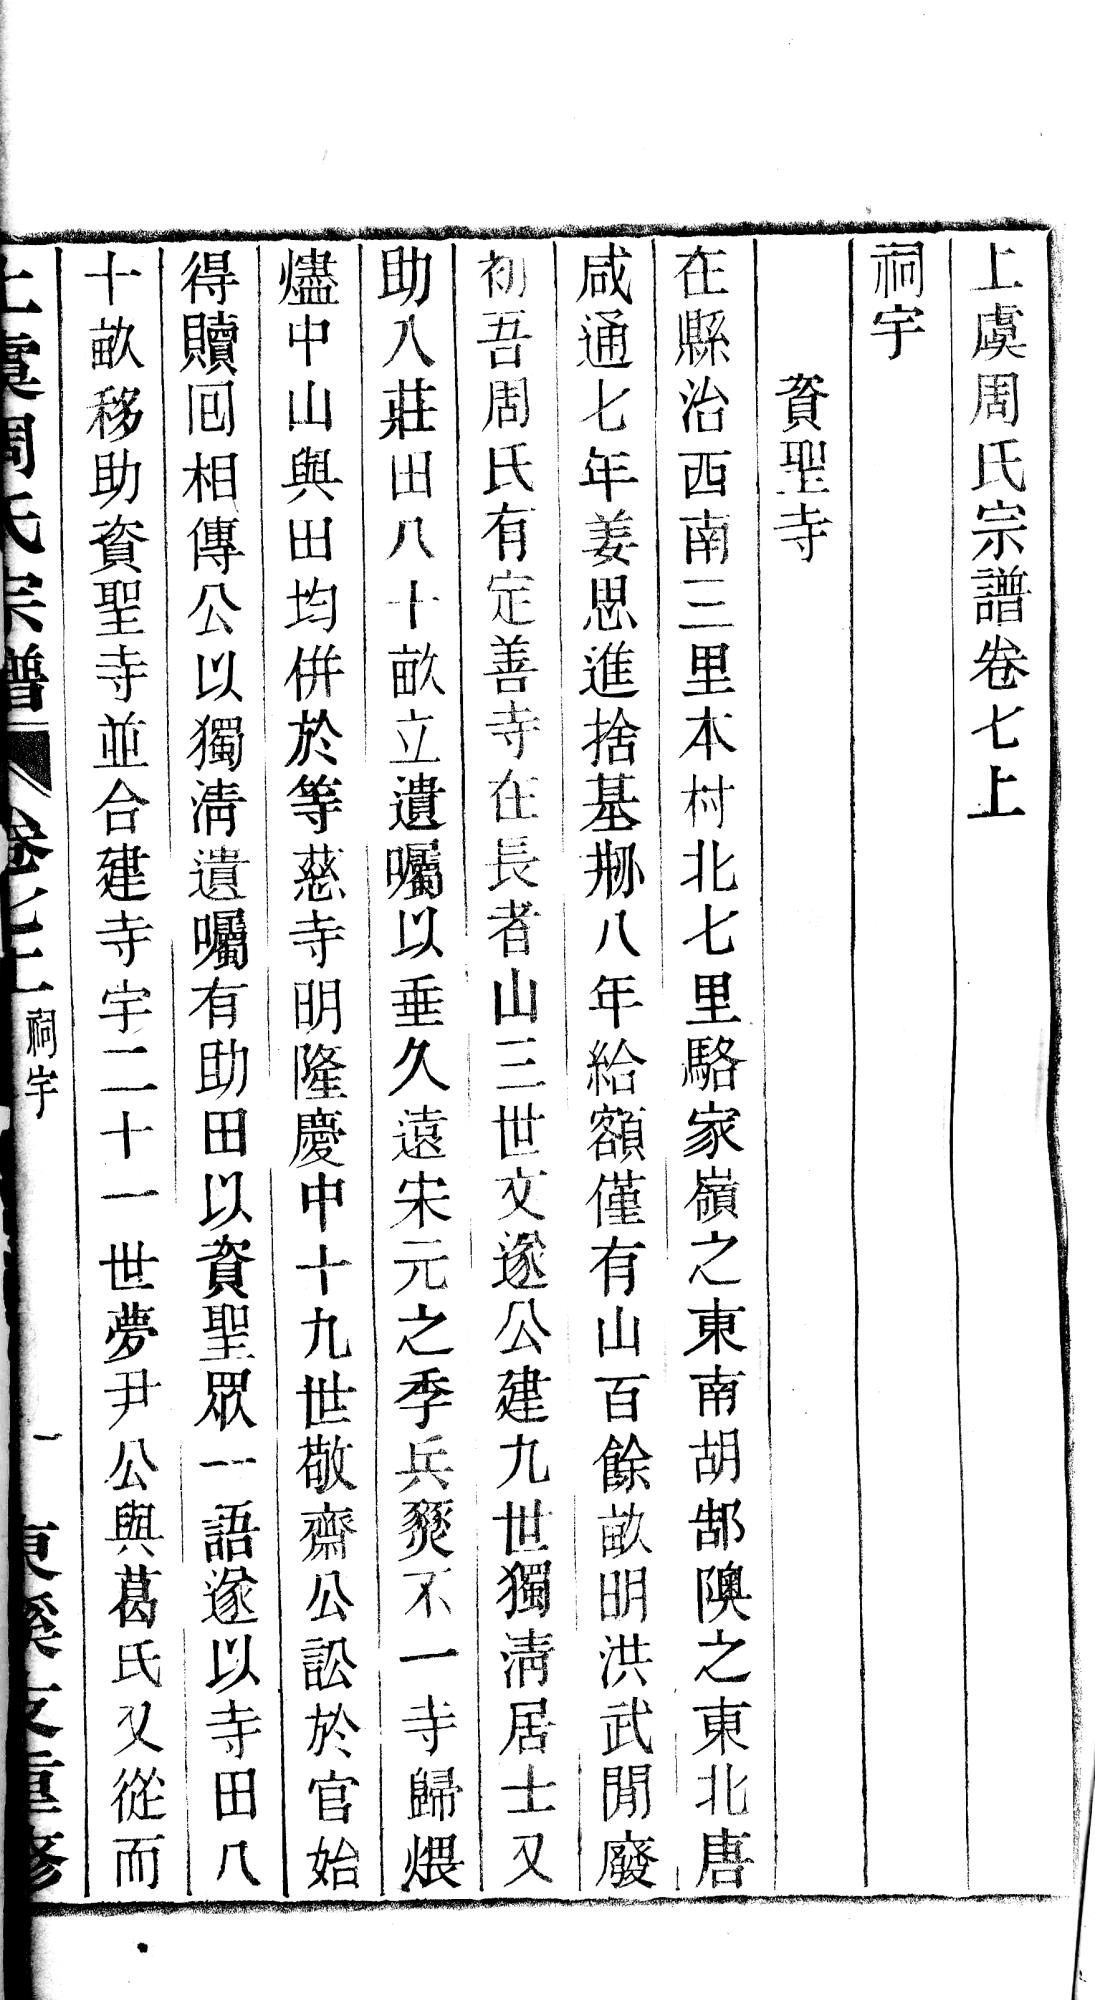 上虞周氏宗譜卷七上
祠宇
資聖寺
在縣治西南三里本村北七里駱家嶺之東南胡郜隩之東北唐
咸通七年姜思進捨基刱八年給額僅有山百餘畝明洪武閒廢
初吾周氏有定善寺在長者山三世文邃公建九世獨淸居士又
助入莊田八十畝立遺囑以垂久遠宋元之季兵燹不一寺歸煨
燼中山與田均併於等慈寺明隆慶中十九世敬齋公訟於官始
得贖囘相傳公以獨淸遺囑有助田以資聖眾一語遂以寺田八
十畝移助資聖寺並合建寺宇二十一世夢尹公與葛氏又從而
上虞周氏宗譜
卷七上
祠宇
一
東溪支重修